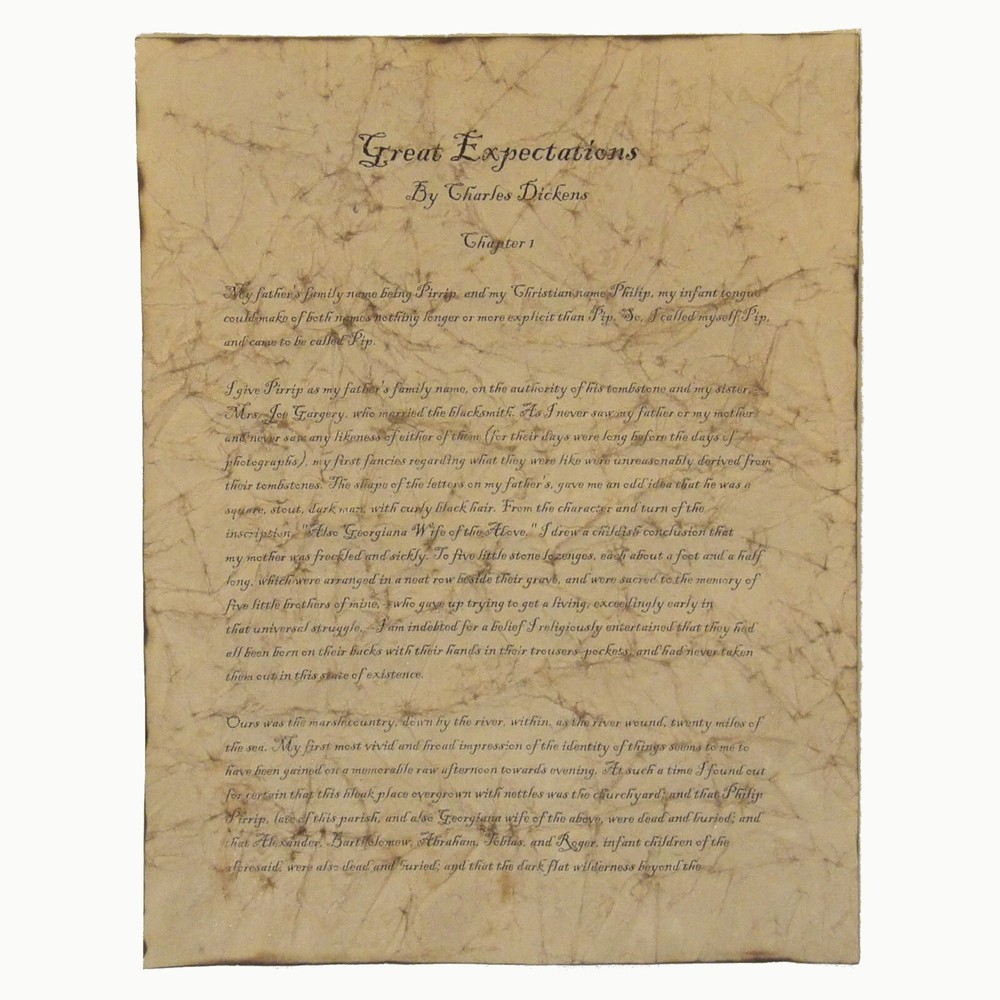 Great Expectations
By Charles Dickens
Chapter 1
My father's family name being Pirrip, and my Christian name Philip, my infant tongue
could make of both names nothing longer or more explicit than Pip. So, I called myself Pip,
and came to be called Pip.
I give Pirrip as my father's family name, on the authority of his tombstone and my sister,
Mrs. Joe Gargery, who married the blacksmith. As I never saw my father or my mother
and never saw any likeness of either of them (for their days were long before the days of
photographs), my first fancies regarding what they were like were unreasonably derived from
their tombstones. The shape of the letters on my father's, gave me an odd idea that he was a
square, stout, dark man, with curly black hair. From the character and turn of the
inscription, "Also Georgiana Wife of the Above," I drew a childish conclusion that
my mother was freckled and sickly. To five little stone lozenges, each about a foot and a half
long, which were arranged in a neat row beside their grave, and were sacred to the memory of
five little brothers of mine,--who gave up trying to get a living, exceedingly early in
that universal struggle,--I am indebted for a belief I religiously entertained that they had
all been born on their backs with their hands in their trousers-pockets, and had never taken
them out in this state of existence.
Ours was the marsh country, down by the river, within, as the river wound, twenty miles of
the sea. My first most vivid and broad impression of the identity of things seems to me to
have been gained on a memorable raw afternoon towards evening. At such a time I found out
for certain that this bleak place overgrown with nettles was the churchyard; and that Philip
Pirrip, late of this parish, and also Georgiana wife of the above, were dead and buried; and
that Alexander, Bartholomew, Abraham, Tobias, and Roger, infant children of the
aforesaid, were also dead and buried; and that the dark flat wilderness beyond the